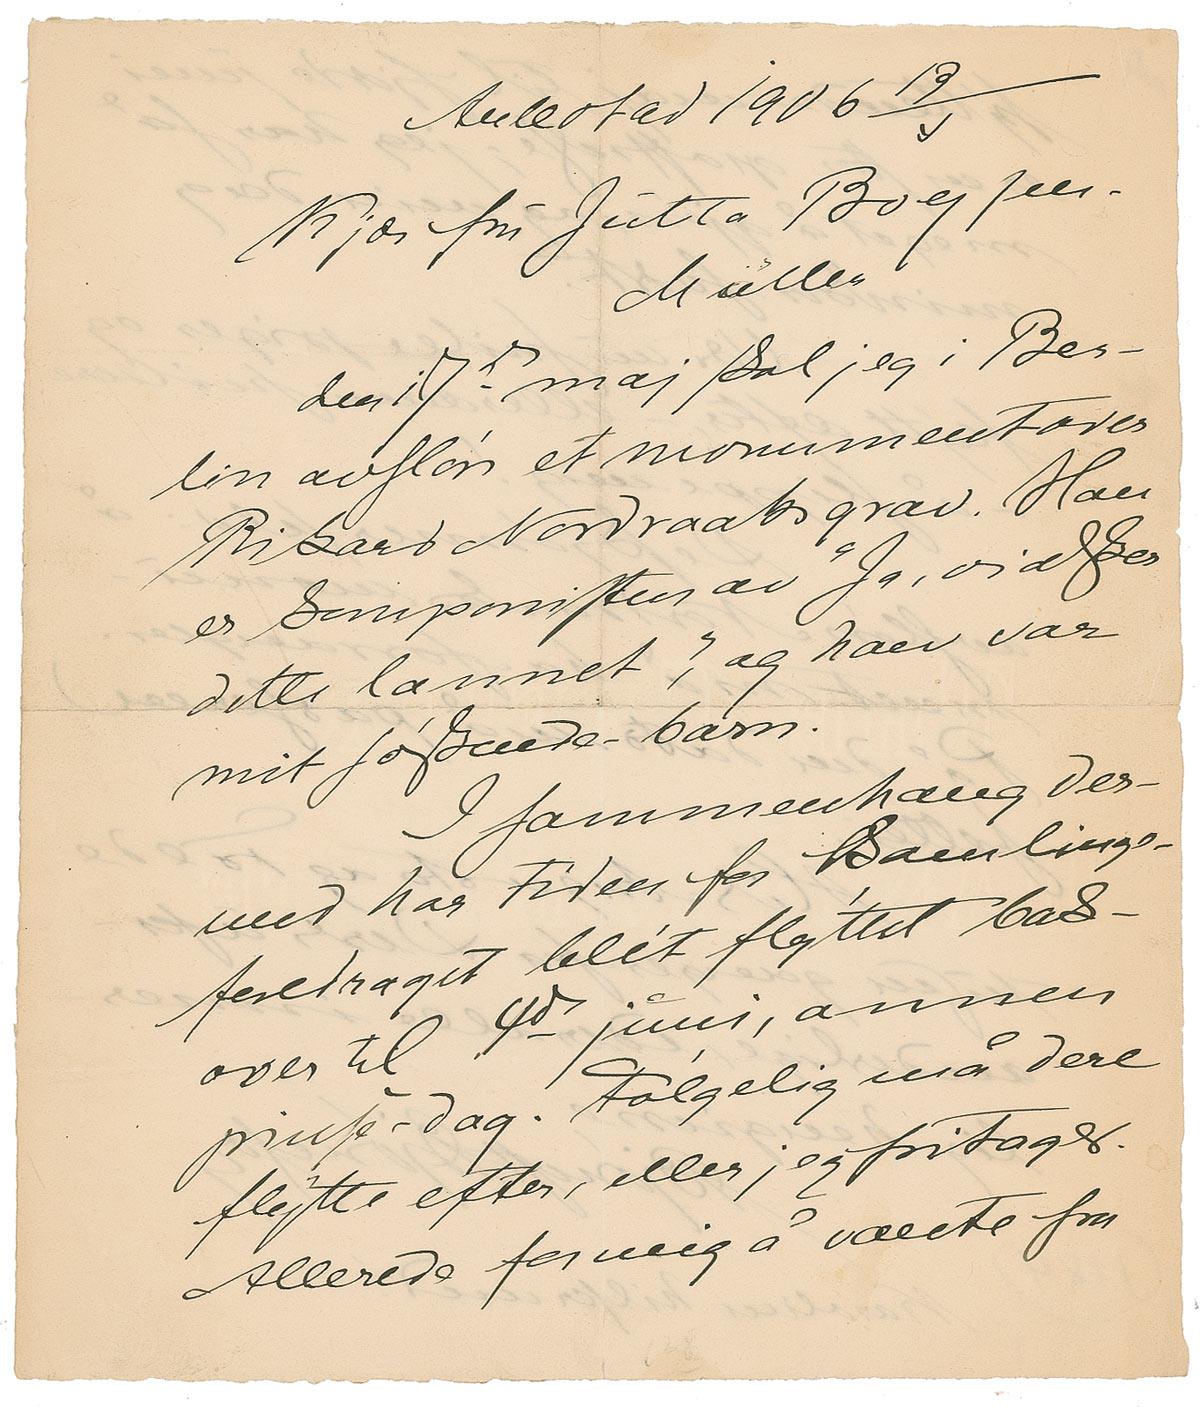 Aulestad 1906 13/5
Kjære fru Jutta Bojsen-
Møller
den 17de maj skal jeg i Ber-
lin avsløre et monument over
Rikard Nordraaks grav. Han
er komponisten av "Ja, vi elsker
dette lannet", og han var
mit søskende-barn.
I sammenhæng der-
med har tiden for Samlings-
foredraget blét flyttet bak-
over til 4de juni, annen
pinse-dag. Følgelig må dere
flytte efter, eller jeg fritages.
Allerede for mig å vænte fra